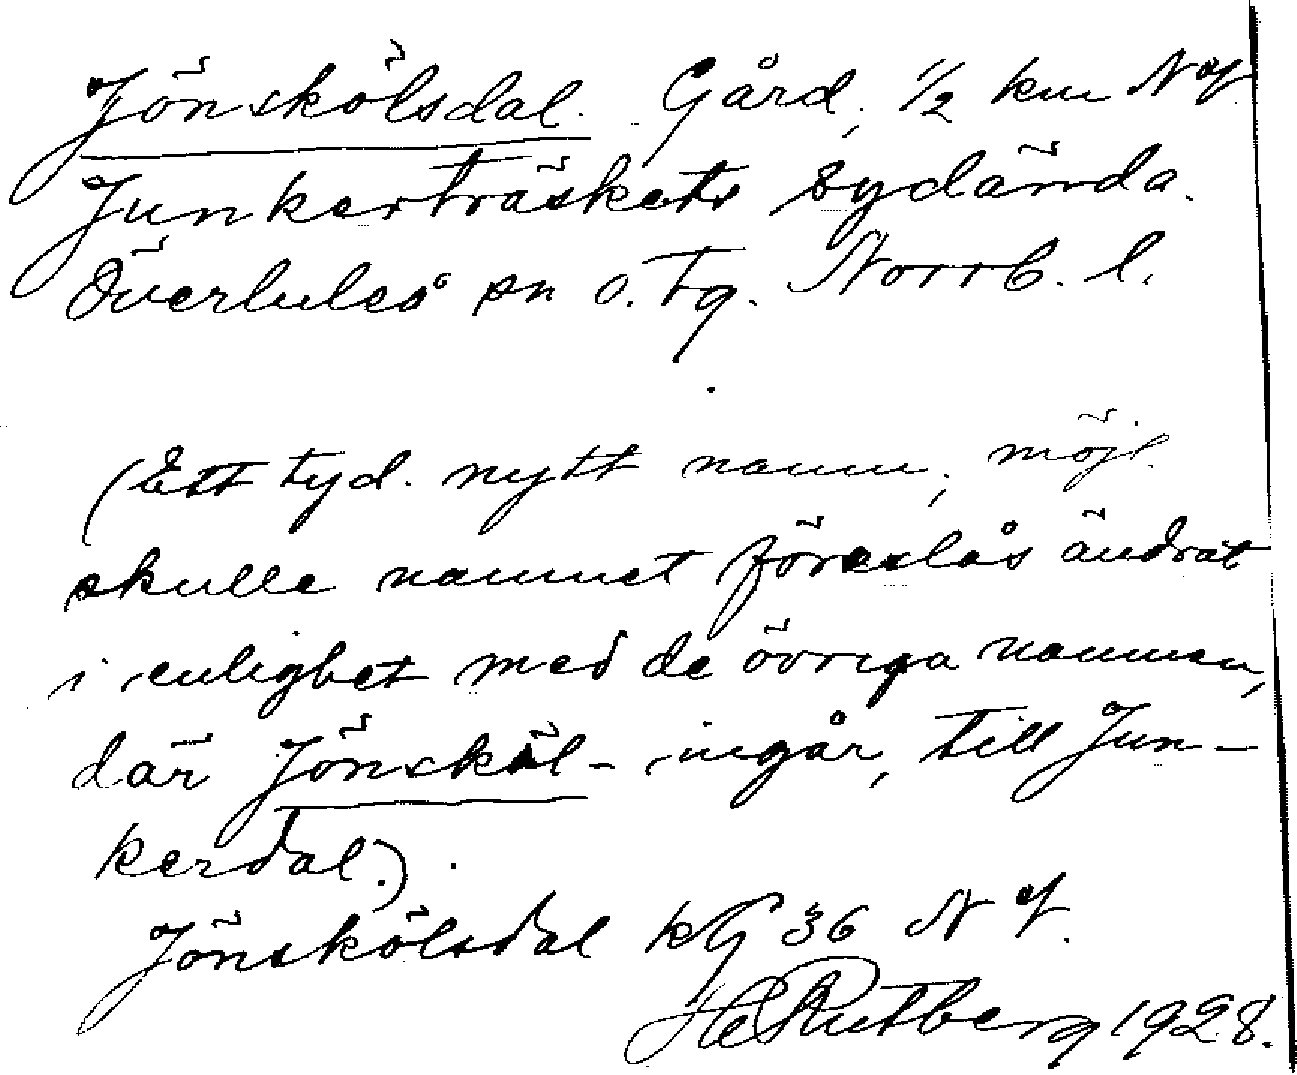 Jönskölsdal. Gård, 1/2 km N of
Junkerträskets sydända.
Överluleå sn o. tg. Norrb. l.
(Ett tyd. nytt namn; möjl.
skulle namnet föreslås ändrat
i enlighet med de övriga namnen,
där Jönsköl- ingår, till Jun-
kerdal.).
Jönskölsdal kG 36 N f.
HeRutberg 1928.